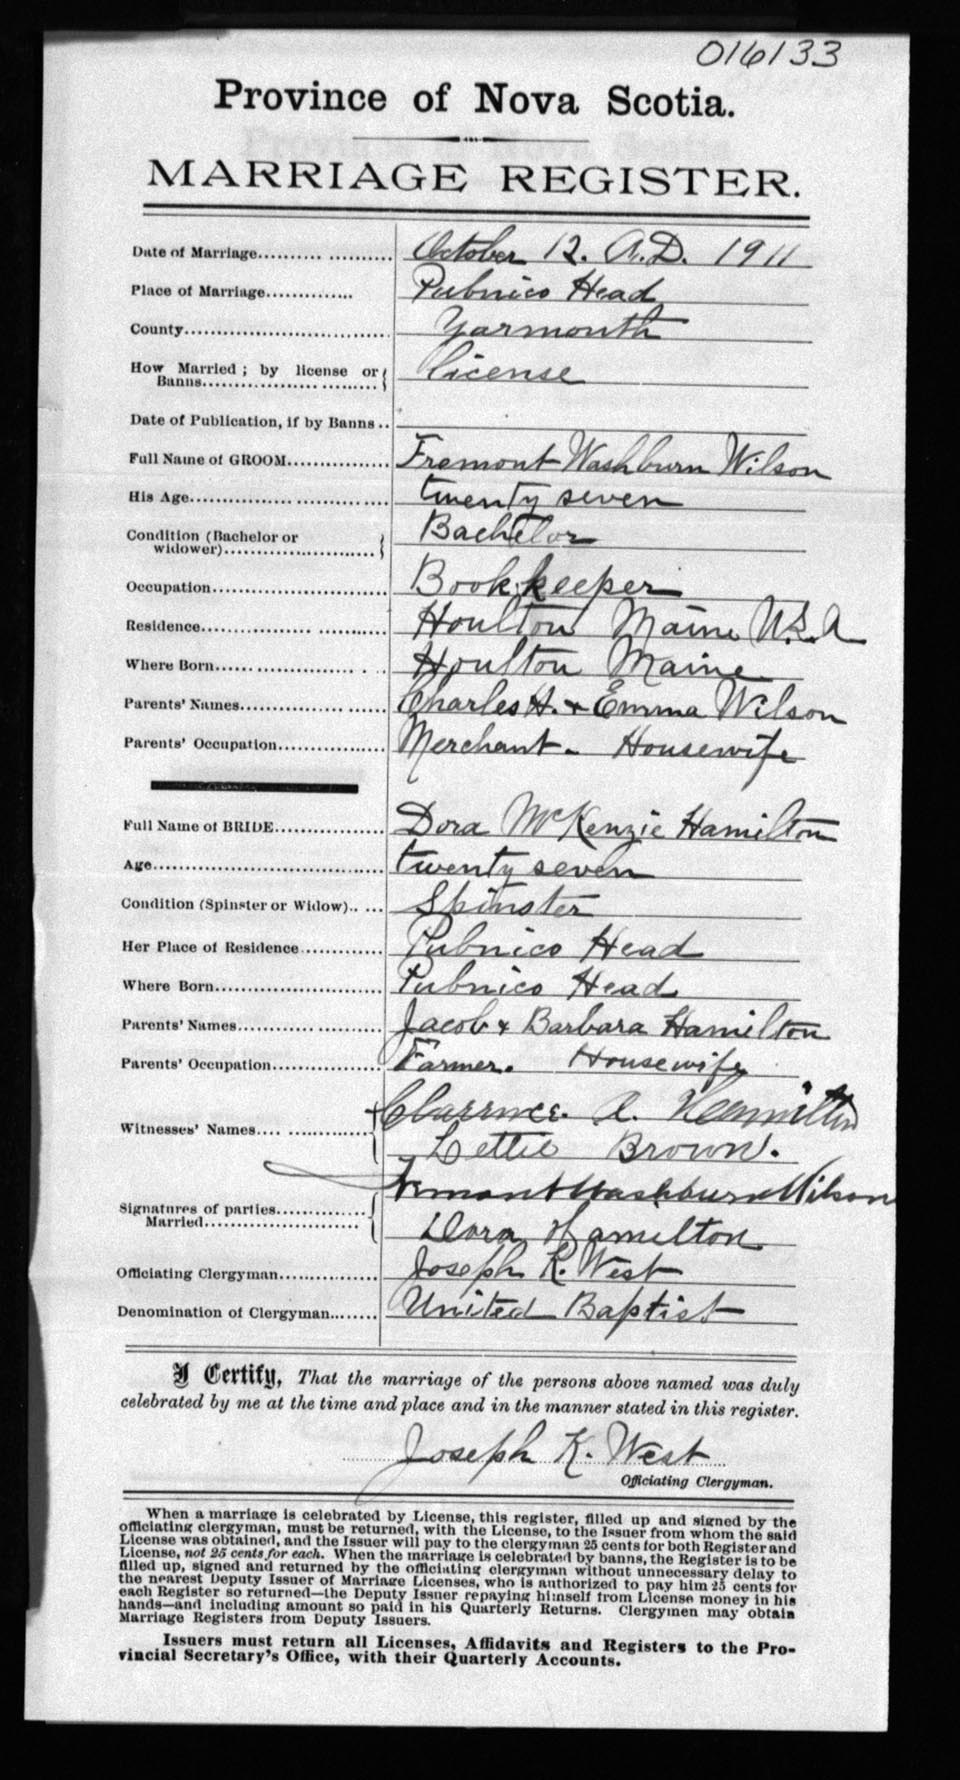 016133
Province of Nova Scotia.
MARRIAGE REGISTER.
Date of Marriage.......... .......... October 12. A.D. 1911
Place of Marriage.............. Pubnico Head
County.................................... Yarmouth
How Married ; by license or license
Banns.......................................
Date of Publication, if by Banns ..
Full Name of GROOM................. Fremont Washburn Wilson
His Age................................... twenty seven
Condition (Bachelor or Bachelor
widower)..............................
Occupation............................... Bookkeeper
Residence................. ........... Houlton Maine U.S.A
Where Born...... ............... . . Houlton Maine
Parents' Names.............. ...... Charles H. + Emma Wilson
Parents' Occupation................. Merchant - Housewife
Full Name of BRIDE................. Dora McKenzie Hamilton
Age......................................... twenty seven
Condition (Spinster or Widow).. ... Spinster
Her Place of Residence............. Pubnico Head
Where Born............................. Pubnico Head
Parents' Names............ ........... Jacob + Barbara Hamilton
Parents' Occupation.................. Farmer. Housewife
Clarence. A. Hamilton
Witnesses' Names.... ..............
Lettie Brown.
Fremont Washburn Wilson
Signatures of parties..............
Married............................
Dora Hamilton
Officiating Clergyman............... Joseph K. West
Denomination of Clergyman....... United Baptist
I Certify, That the marriage of the persons above named was duly
celebrated by me at the time and place and in the manner stated in this register.
Joseph K. West
Officiating Clergyman.
When a marriage is celebrated by License, this register, filled up and signed by the
officiating clergyman, must be returned, with the License, to the Issuer from whom the said
License was obtained, and the Issuer will pay to the clergyman 25 cents for both Register and
License, not 25 cents for each. When the marriage is celebrated by banns, the Register is to be
filled up, signed and returned by the officiating clergyman without unnecessary delay to
the nearest Deputy Issuer of Marriage Licenses, who is authorized to pay him 25 cents for
each Register so returned—the Deputy Issuer repaying himself from License money in his
hands—and including amount so paid in his Quarterly Returns. Clergymen may obtain
Marriage Registers from Deputy Issuers.
Issuers must return all Licenses, Affidavits and Registers to the Pro-
vincial Secretary's Office, with their Quarterly Accounts.